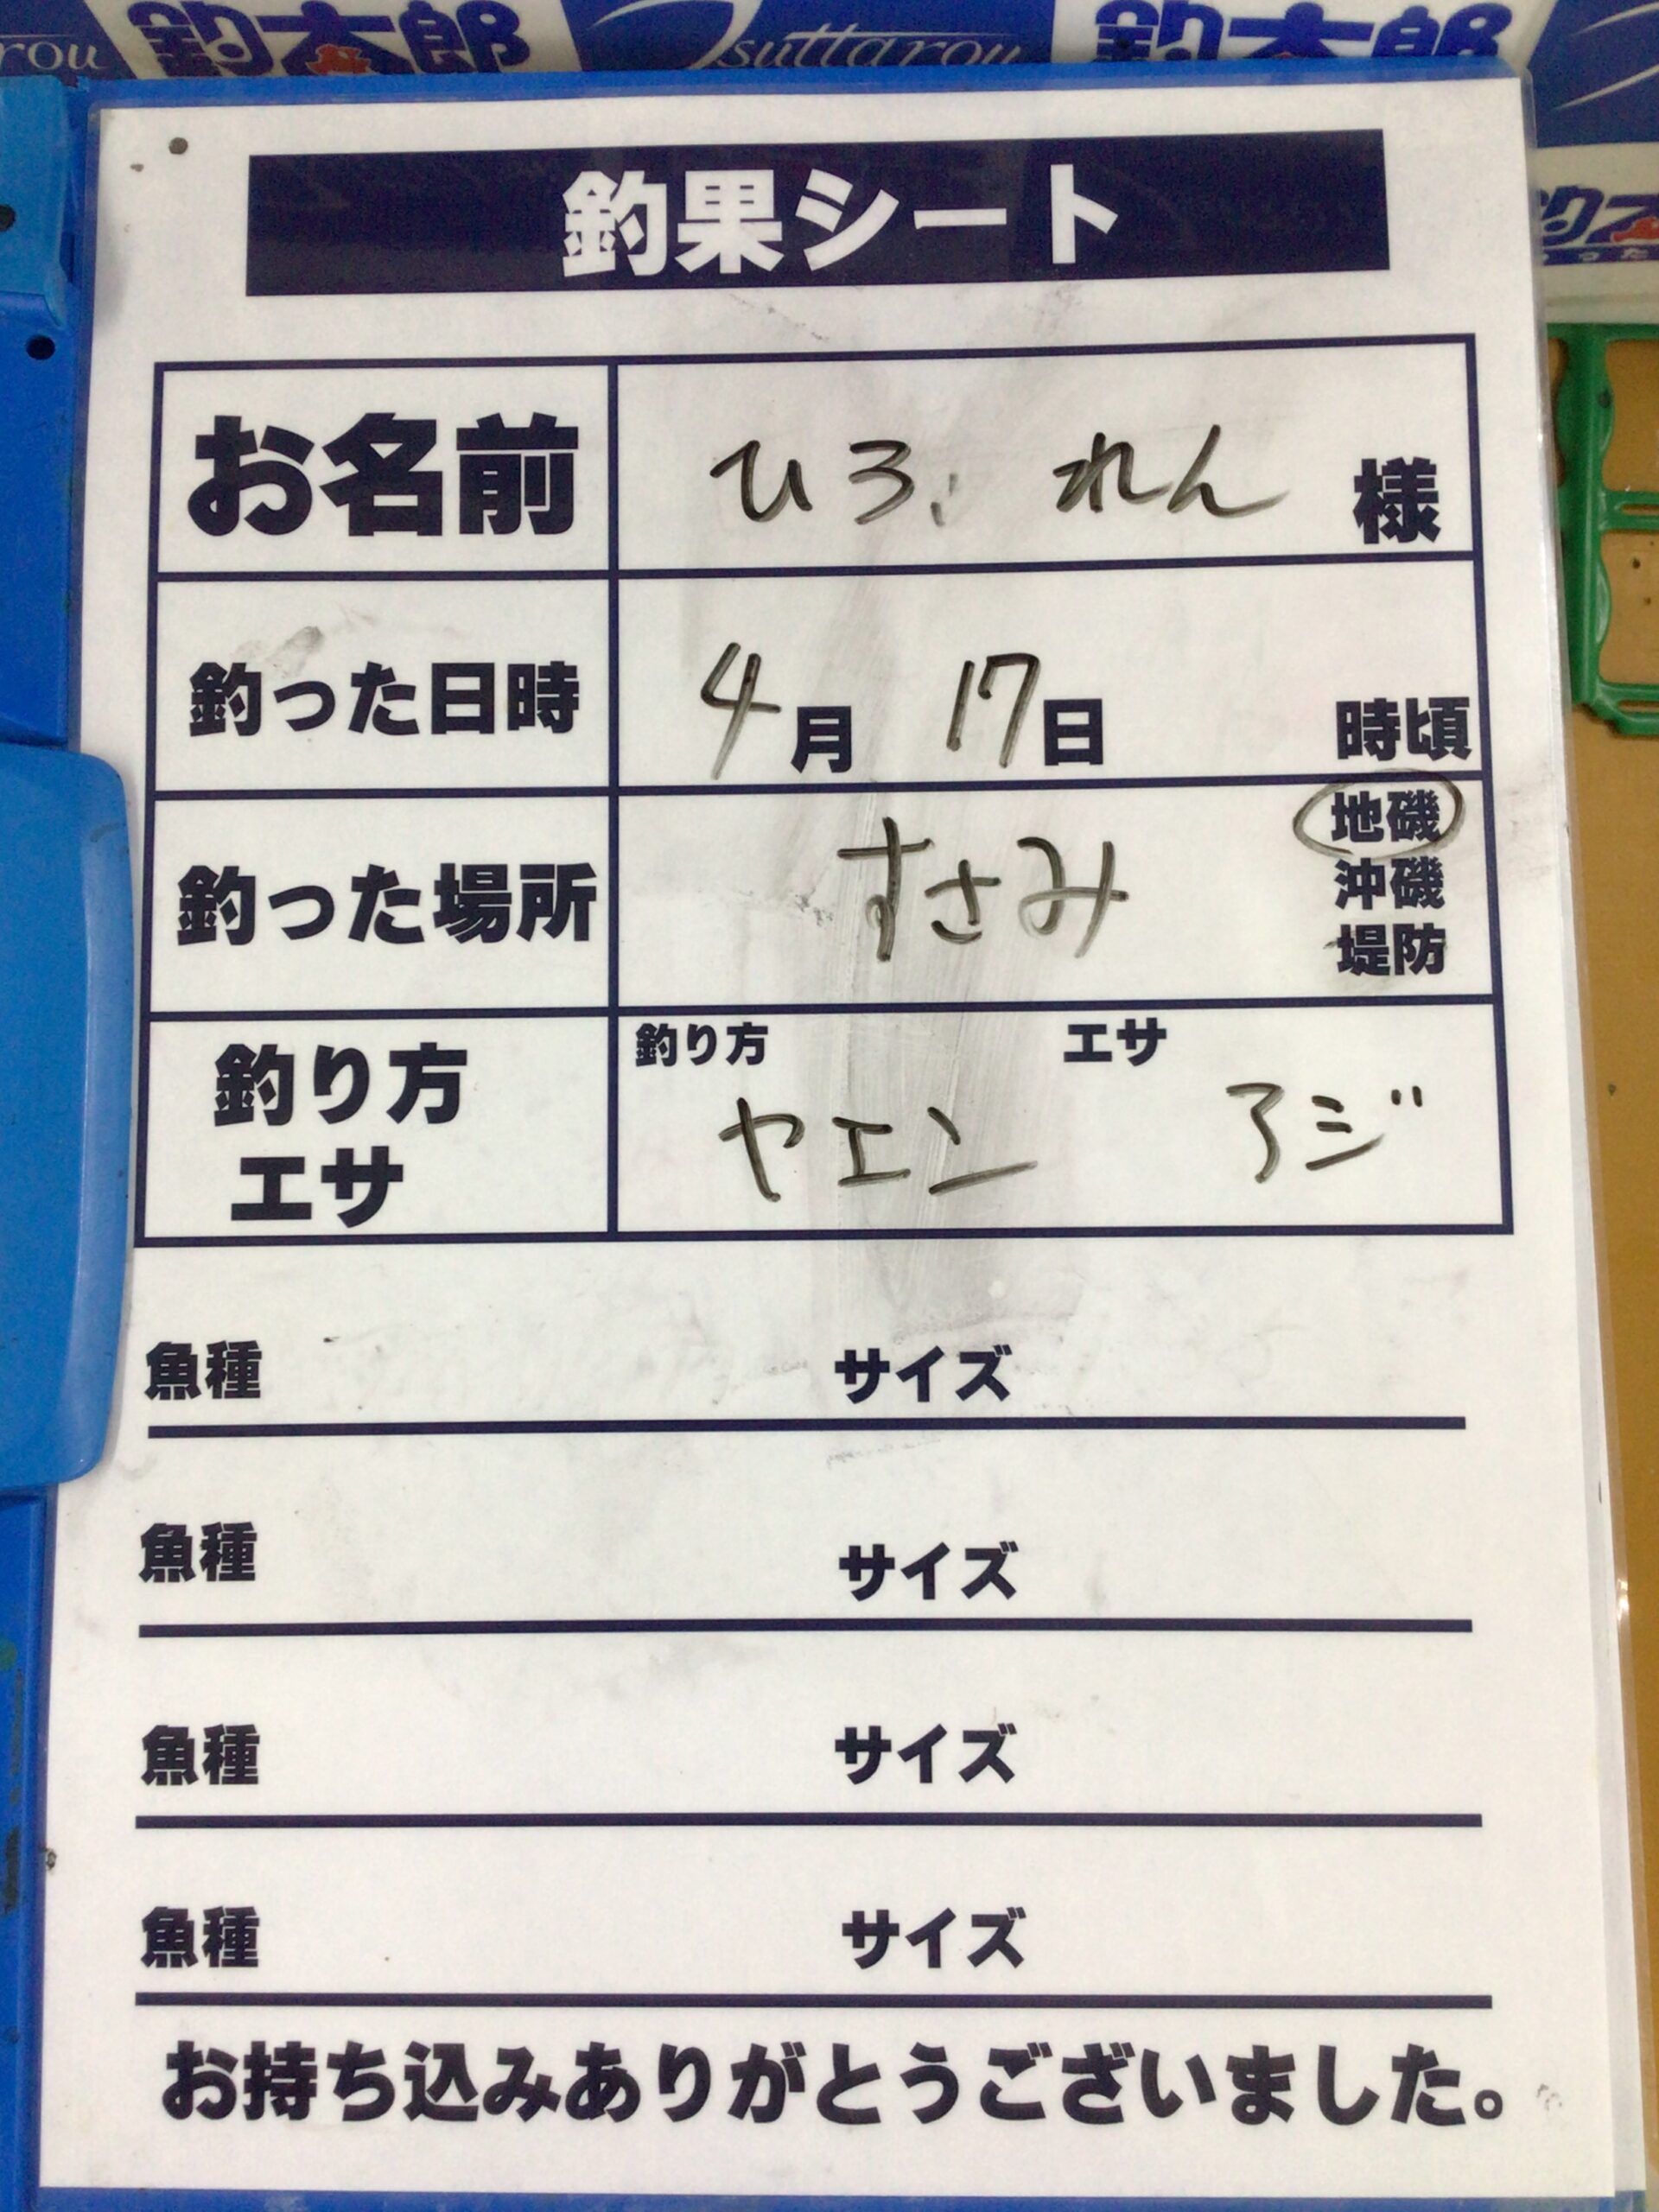 rou 釣太郎 Tsuttarou 釣太郎
釣果シート
お名前 ひろ、 れん 様
釣った日時 4月 17日 時頃
釣った場所 すさみ 地磯
沖磯
堤防
釣り方 エサ
釣り方 ヤエン アジ
エサ
魚種 サイズ
魚種 サイズ
魚種 サイズ
魚種 サイズ
お持ち込みありがとうございました。